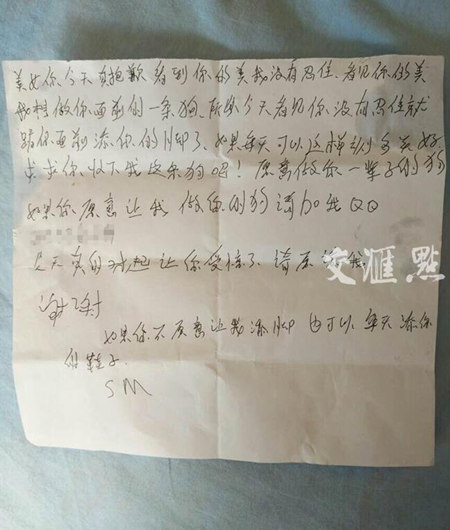 美女你今天真抱歉看到你的美我没有忍住、看见你的美
我想做你面前的一条狗、所以今天看见你、没有忍住就
跪你面前添你的脚了、如果每天可以这样多好
求求你、收下我这条狗吧！愿意做你一辈子的狗
如果你愿意让我做你的狗请加我QQ
今天真的对起让你受惊了、请原谅我
交滙點
谢谢
如果你不愿意让我添脚也可以每天添你
的鞋子.
SM